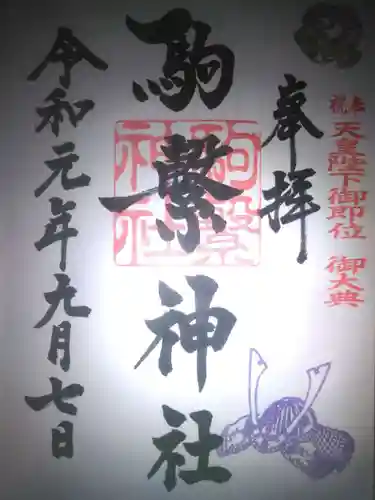 祝奉
天皇陛下御即位 御大典
奉拝
駒繋神社
駒繋
神社
令和元年九月七日